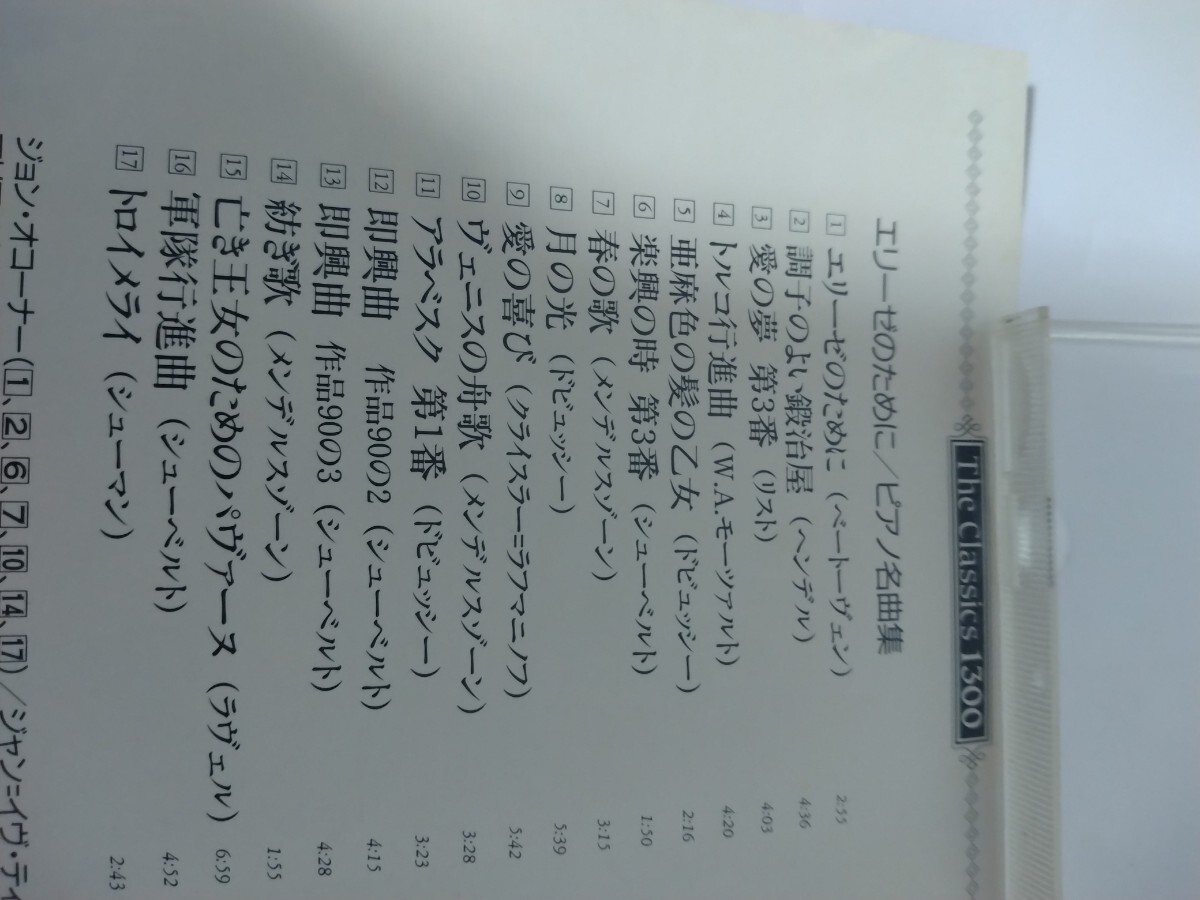 The Classics 1300
エリーゼのために／ピアノ名曲集
1 エリーゼのために（ベートーヴェン） 2:55
2 調子のよい鍛冶屋（ヘンデル） 4:36
3 愛の夢 第3番（リスト） 4:03
4 トルコ行進曲（W.A.モーツァルト） 4:20
5 亜麻色の髪の乙女（ドビュッシー） 2:16
6 楽興の時 第3番（シューベルト） 1:50
7 春の歌（メンデルスゾーン） 3:15
8 月の光（ドビュッシー） 5:39
9 愛の喜び（クライスラー=ラフマニノフ） 5:42
10 ヴェニスの舟歌（メンデルスゾーン） 3:28
11 アラベスク 第1番（ドビュッシー） 3:23
12 即興曲 作品90の2（シューベルト） 4:15
13 即興曲 作品90の3（シューベルト） 4:28
14 紡ぎ歌（メンデルスゾーン） 1:55
15 亡き王女のためのパヴァーヌ（ラヴェル） 6:59
16 軍隊行進曲（シューベルト） 4:52
17 トロイメライ（シューマン） 2:43
ジョン・オコーナー（1、2、6、7、10、14、17）／ジャン=イヴ・ティ